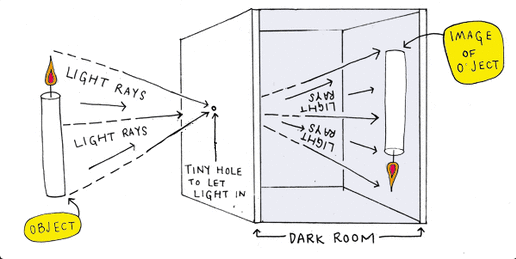 LIGHT RAYS
LIGHT RAYS
OBJECT
TINY HOLE
TO LET
LIGHT IN
LIGHT
RAYS
LIGHT
RAYS
IMAGE
OF
O'JECT
DARK ROOM